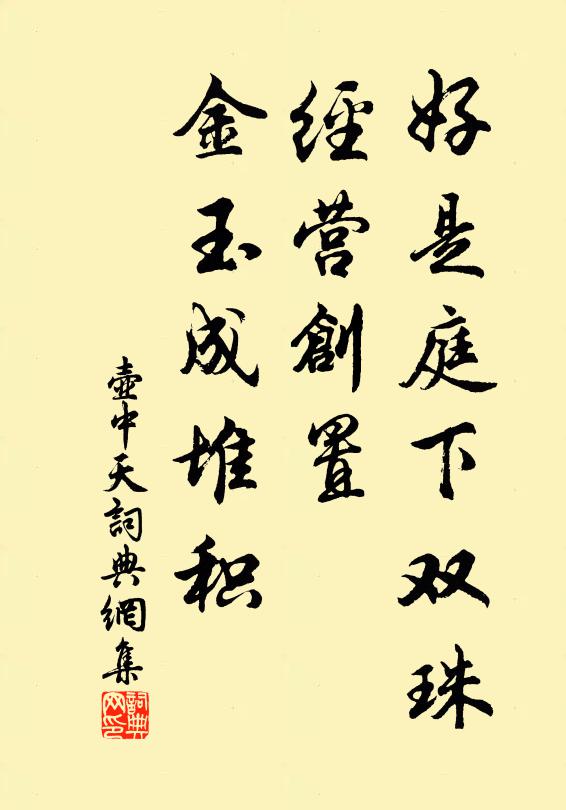 好是庭下双珠
經营創置
金玉成堆积
壶中天詞典網集
詞典
网印